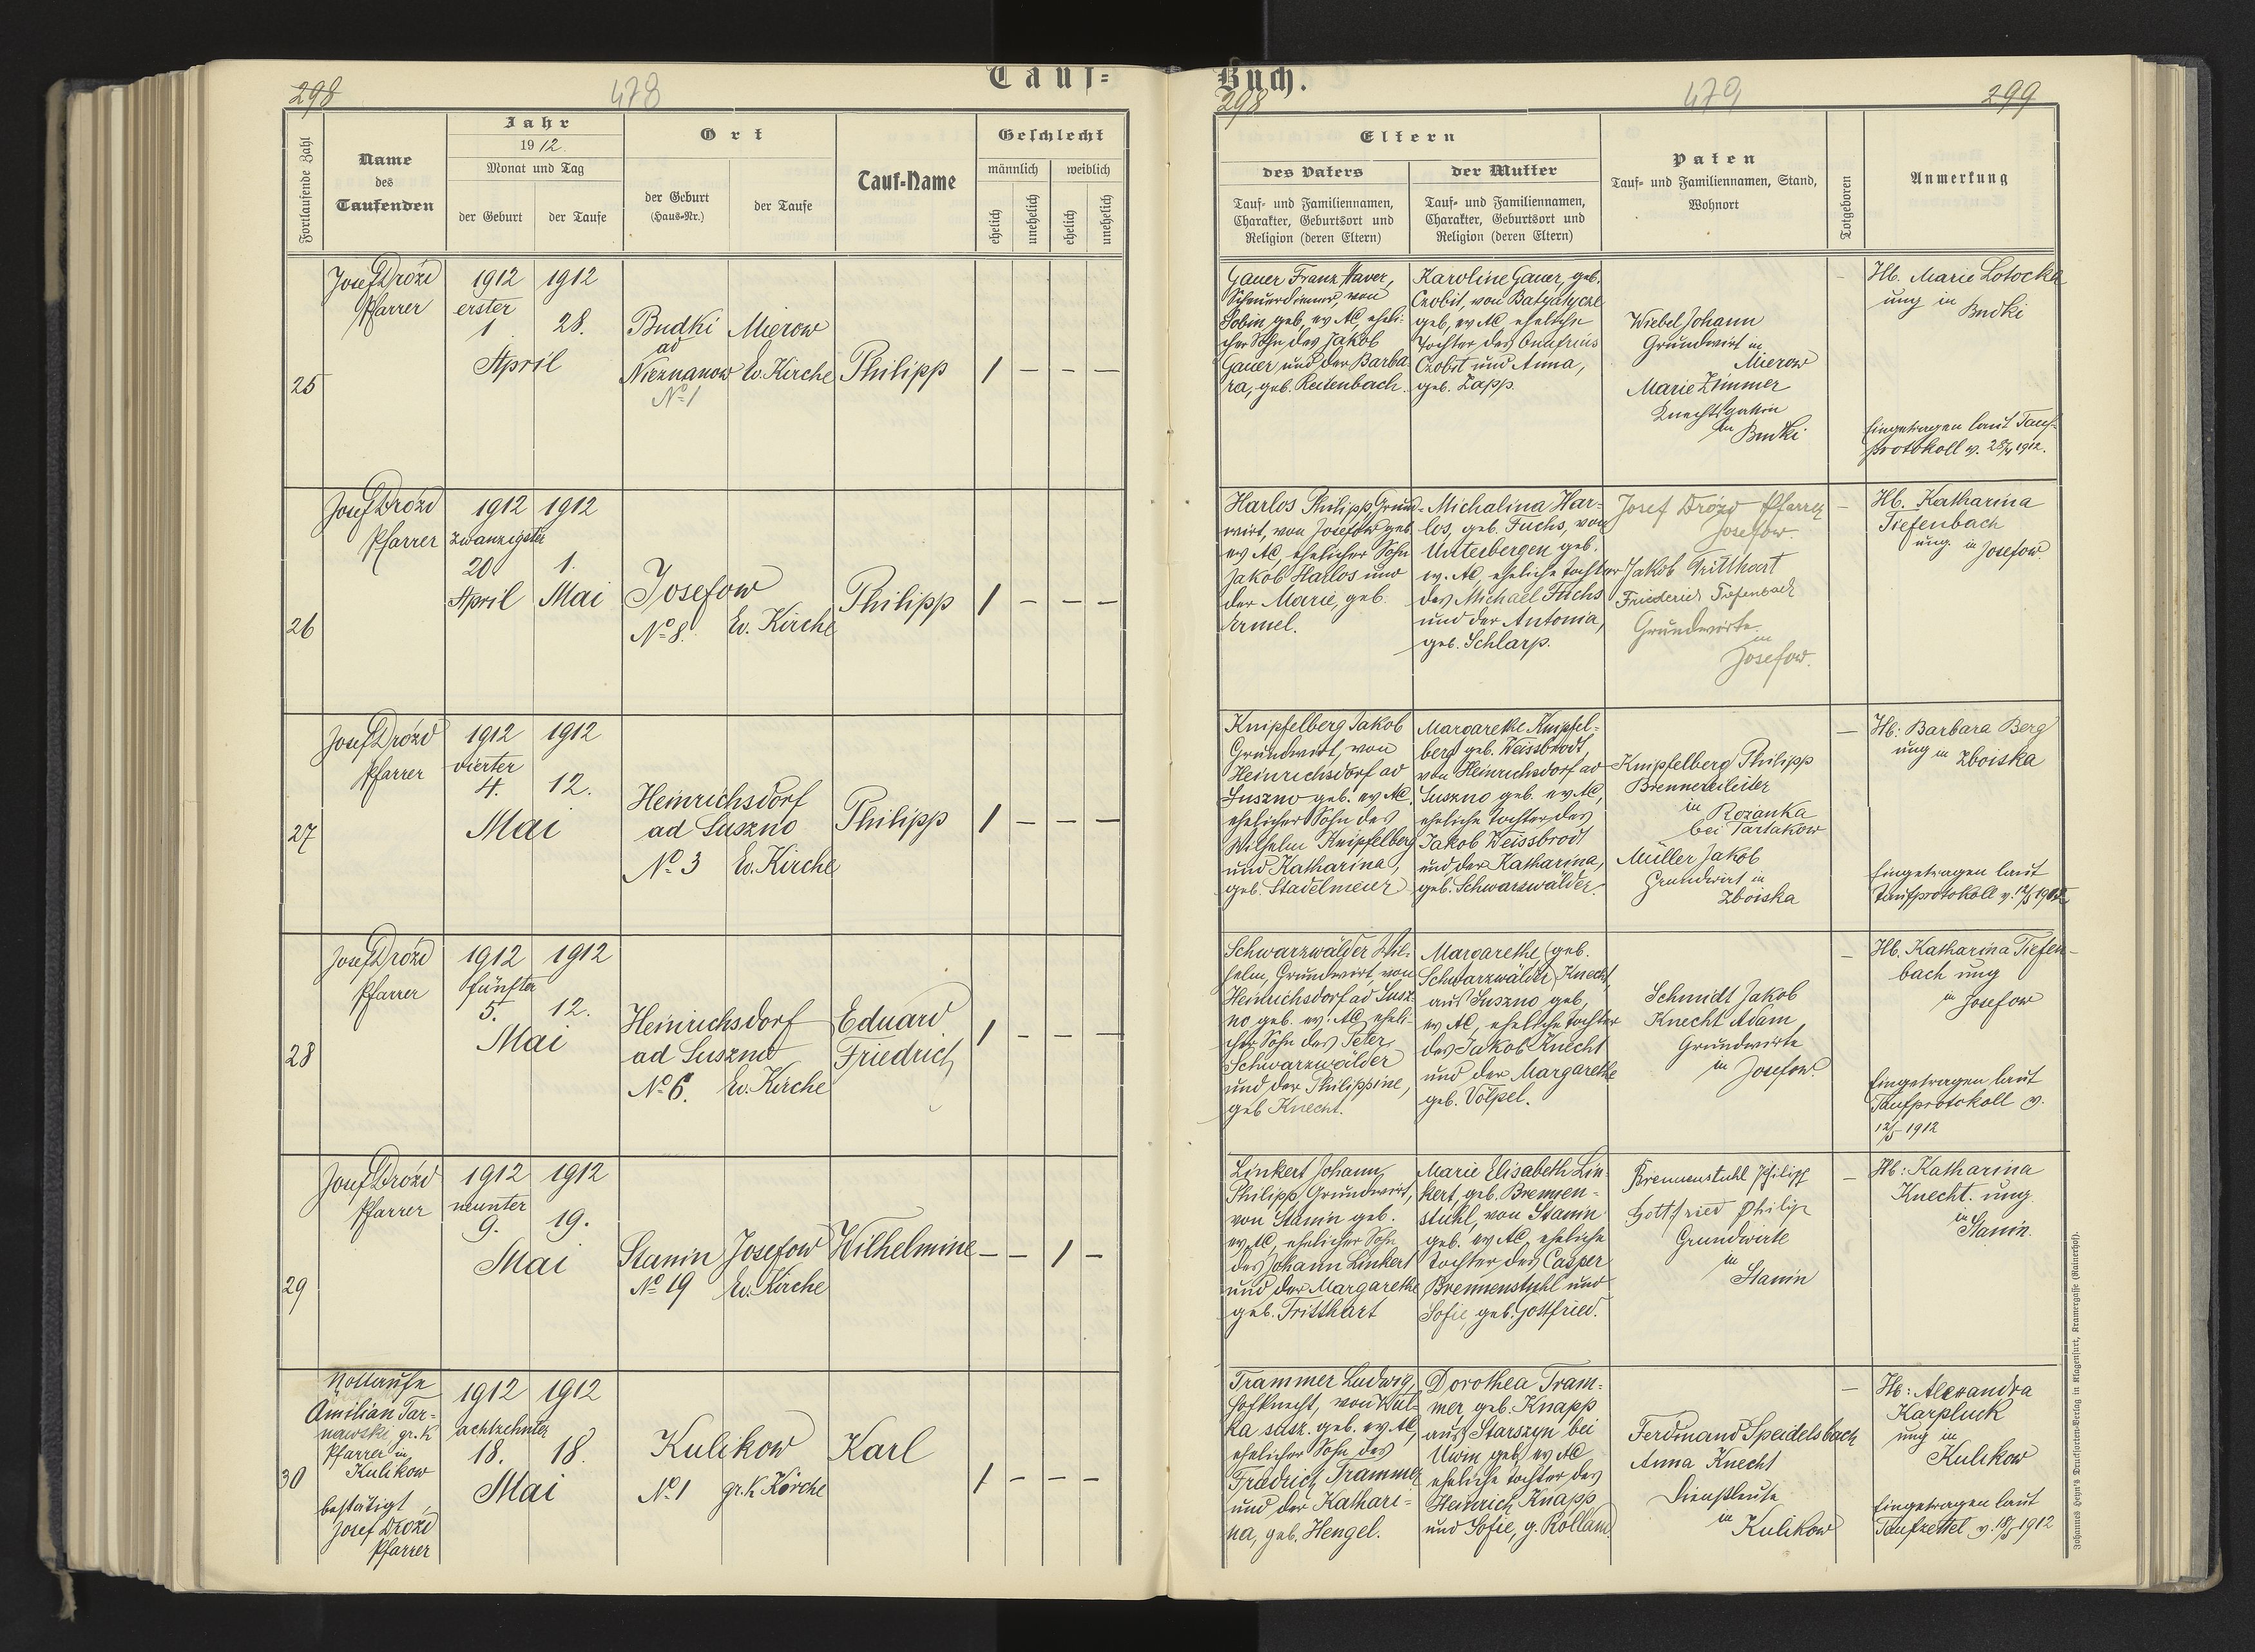 298
478
Tauf-
Fortlaufende Zahl
Name
des
Taufenden
Jahr
1912.
Monat und Tag
der Geburt
der Taufe
Ort
der Geburt
(Haus-Nr.)
der Taufe
Tauf-Name
Geschlecht
männlich
weiblich
ehelich
unehelich
ehelich
unehelich
25
Josef Drózd
Pfarrer
1912
erster
1
April
1912
28.
Budki
ad
Nieznanow
No 1
Mierow
Ev. Kirche
Philipp
/ — — —
26
Josef Drózd
Pfarrer
1912
zwanzigster
20
April
1912
1.
Mai
Josefow
No 8.
Ev. Kirche
Philipp
/ — — —
27
Josef Drózd
Pfarrer
1912
vierter
4.
Mai
1912
12.
Heinrichsdorf
ad Suszno
No 3
Ev. Kirche
Philipp
/ — — —
28
Josef Drózd
Pfarrer
1912
fünfter
5.
Mai
1912
12.
Heinrichsdorf
ad Suszno
No 6.
Ev. Kirche
Eduard
Friedrich
/ — — —
29
Josef Drózd
Pfarrer
1912
neunter
9.
Mai
1912
19.
Stanin
No 19
Josefow
Ev. Kirche
Wilhelmine
— — / —
30
Nottaufe
Ämilian Tar-
nawski gr. k
Pfarrer in
Kulikow
bestätigt
Josef Drózd
Pfarrer
1912
achtzehnter
18.
Mai
1912
18.
Kulikow
No 1
gr. k Kirche
Karl
/ — — —
Buch.
298
479
299
Eltern
des Vaters
Tauf- und Familiennamen,
Charakter, Geburtsort und
Religion (deren Eltern)
der Mutter
Tauf- und Familiennamen,
Charakter, Geburtsort und
Religion (deren Eltern)
Paten
Tauf- und Familiennamen, Stand,
Wohnort
Totgeboren
Anmerkung
Gauer Franz Xaver,
von
geb, ev AC, eheli-
cher Sohn des Jakob
Gauer und der Barba-
ra, geb. Reitenbach.
Karoline Gauer, geb.
Czobit, von Batyatycze
geb, ev AC eheliche
Tochter des Onufrius
Czobit und Anna,
geb. Zapp.
Wiebel Johann
Grundwirt in
Mierow
Marie Zimmer
Knechtsgattin
in Budki
—
Hb. Marie Lotocka
ung in
Budki
Eingetragen laut Tauf-
protokoll v. 28/4 1912.
Harlos Philipp, Grund-
wirt, von Josefow geb.
ev AC, ehelicher Sohn
Jakob Harlos und
der Marie, geb.
Ermel.
Michalina Har-
los, geb. Fuchs, von
Unterbergen geb.
ev. AC, eheliche Tochter
des Michael Fuchs
und der Antonia,
geb. Schlarp.
Josef Drózd Pfarrer
Josefow.
Jakob Tritthart
Friederich Tiefenbach
Grundwirte
in
Josefow.
—
Hb. Katharina
Tiefenbach
ung. in Josefow
Knipfelberg Jakob
Grundwirt, von
Heinrichsdorf ad
Suszno geb. ev AC.
ehelicher Sohn des
Wilhelm Knipfelberg
und Katharina,
geb. Stadelmeier
Margarethe Knipfel-
berg geb. Weissbrodt,
von Heinrichsdorf ad
Suszno geb. ev AC,
eheliche Tochter des
Jakob Weissbrodt
und der Katharina,
geb. Schwarzwälder.
Knipfelberg Philipp
Brennereileiter
in Rozanka
bei Tartakow
Müller Jakob
Grundwirt in
Zboiska
—
Hb: Barbara Berg
ung in Zboiska
Eingetragen laut
Taufprotokoll v. 12/5 1912
Schwarzwälder Wil-
helm, Grundwirt, von
Heinrichsdorf ad Susz-
no geb. ev. AC, eheli-
cher Sohn des Peter
Schwarzwälder
und der Philippine,
geb Knecht.
Margarethe (geb.
Schwarzwälder) Knecht,
aus Suszno geb,
ev AC, eheliche Tochter
des Jakob Knecht
und der Margarethe
geb. Völpel.
Schmidt Jakob
Knecht Adam,
Grundwirte
in Josefow.
—
Hb. Katharina Tiefen-
bach ung
in Josefow
Eingetragen laut
Taufprotokoll v.
12/5 1912
Linkert Johann
Philipp, Grundwirt,
von Stanin geb.
ev AC, ehelicher Sohn
des Johann Linkert
und der Margarethe
geb. Tritthart
Marie Elisabeth Lin-
kert, geb. Brennen-
stuhl, von Stanin
geb. ev AC, eheliche
Tochter des Casper
Brennenstuhl und
Sofie, geb. Gottfried.
Brennenstuhl Philipp
Gottfried Philip
Grundwirte
in
Stanin
—
Hb: Katharina
Knecht. ung.
in
Stanin.
Trammer Ludwig,
Hofknecht, von Wul-
ka susz. geb. ev. AC,
ehelicher Sohn des
Friedrich Trammer
und der Kathari-
na, geb. Hengel.
Dorothea Tram-
mer, geb. Knapp
aus Starszyn bei
Uwin geb, ev AC
eheliche Tochter des
Heinrich Knapp
und Sofie, g. Rolland
Ferdinand Speidelsbach
Anna Knecht
Dienstleute
in
Kulikow
—
Hb: Alexandra
Karpluck
ung in
Kulikow
Eingetragen laut
Taufzettel v. 18/5 1912
Johannes Heyn's Drucksorten-Verlag in Klagenfurt, Kramergasse (Rainerhof).